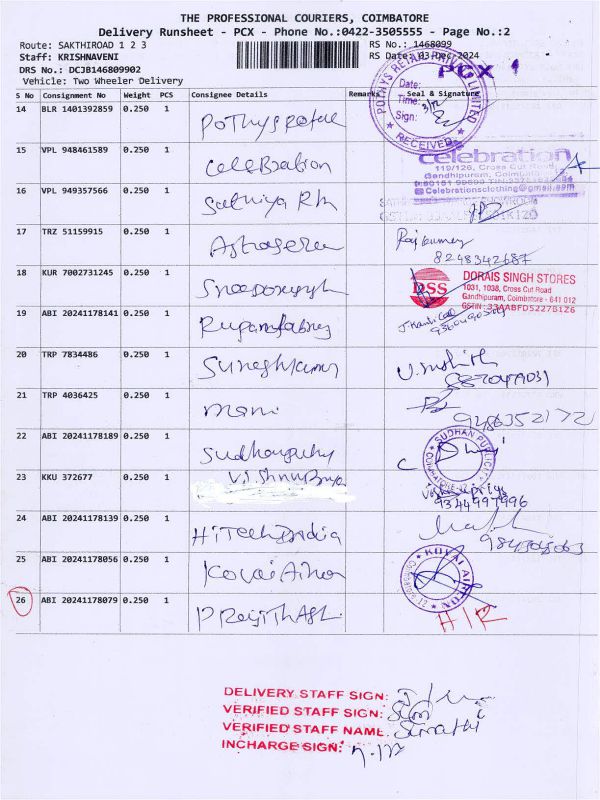 THE PROFESSIONAL COURIERS, COIMBATORE
Delivery Runsheet - PCX - Phone No.:0422-3505555 - Page No.:2
Route: SAKTHIROAD 1 2 3
RS No.: 1468099
Staff: KRISHNAVENI
RS Date: 03-Dec-2024
DRS No.: DCJB146809902
Vehicle: Two Wheeler Delivery
PCX 1
POTHYS RETAIL PRIVATE LIMITED
Date:
Time: 3/12
Sign:
RECEIVED
S No Consignment No Weight PCS Consignee Details Remarks Seal & Signature
14 BLR 1401392859 0.250 1 Pothys Retail
15 VPL 948461589 0.250 1 Celebration
celebration
119/126, Cross Cut Road
Gandhipuram, Coimbatore
Celebrationsclothing@gmail.com
16 VPL 949357566 0.250 1 Sathiya Rh
17 TRZ 51159915 0.250 1 Rajkumar
8248342687
18 KUR 7002731245 0.250 1
DSS DORAIS SINGH STORES
1031, 1038, Cross Cut Road
Gandhipuram, Coimbatore - 641 012
GSTIN : 33AABFD5227B1Z6
19 ABI 20241178141 0.250 1
20 TRP 7834486 0.250 1 Sureshkumar
21 TRP 4036425 0.250 1 mani
9486352172
22 ABI 20241178189 0.250 1
SUDHAN PUBLICITY
COIMBATORE-12
23 KKU 372677 0.250 1 Vishnupriya
Vishnupriya
9344997996
24 ABI 20241178139 0.250 1 HiTech India
25 ABI 20241178056 0.250 1 Kovai Aircon
KOVAI AIRCON
Coimbatore 12
26 ABI 20241178079 0.250 1
H/R
DELIVERY STAFF SIGN:
VERIFIED STAFF SIGN:
VERIFIED STAFF NAME. Sumathi
INCHARGE SIGN: